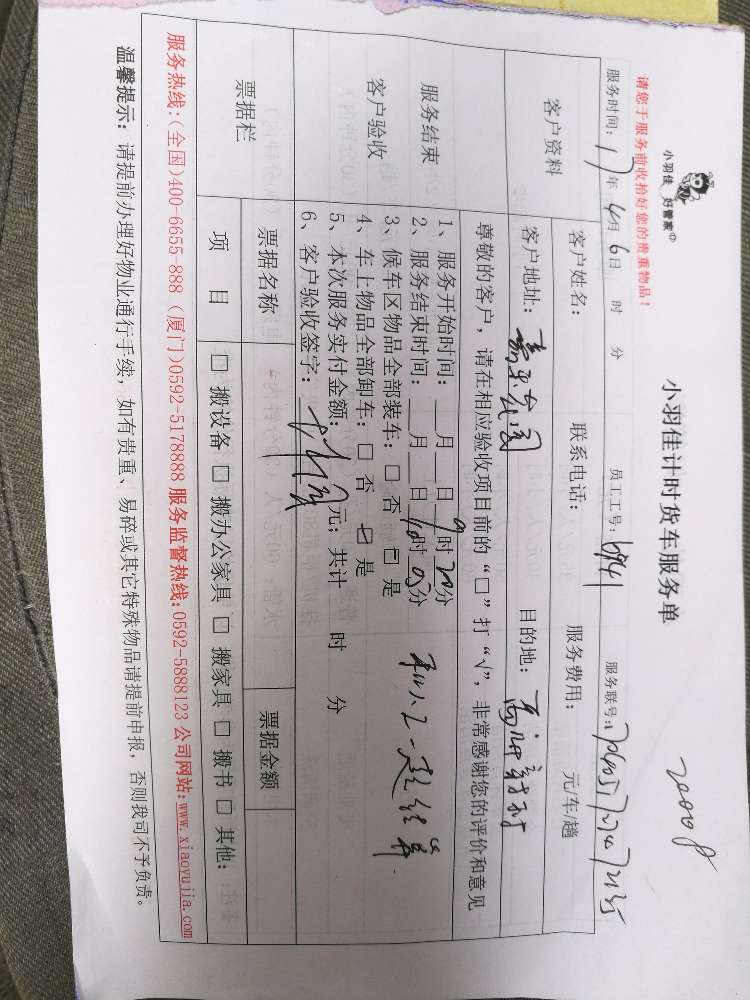 请您于服务前收拾好您的贵重物品！
小羽佳 好管家
小羽佳计时货车服务单
服务时间：17年4月6日 时 分 员工工号：6941 服务联号：
客户资料
客户姓名： 联系电话： 服务费用： 元/车/趟
客户地址： 目的地：
尊敬的客户，请在相应验收项目前的“□”打“√”，非常感谢您的评价和意见
服务结束
客户验收
1、服务开始时间：__月__日9时20分
2、服务结束时间：__月__日10时05分
3、候车区物品全部装车：□ 否 □ 是
4、车上物品全部卸车：□ 否 ☑ 是
5、本次服务实付金额： 元；共计 时 分
6、客户验收签字：
票据栏
票据名称 票据金额
项 目 □ 搬设备 □ 搬办公家具 □ 搬家具 □ 搬书 □ 其他：
服务热线：(全国)400-6655-888 (厦门)0592-5178888 服务监督热线：0592-5888123 公司网站：www.xiaoyujia.com
温馨提示：请提前办理好物业通行手续，如有贵重、易碎或其它特殊物品请提前申报，否则我司不予负责。